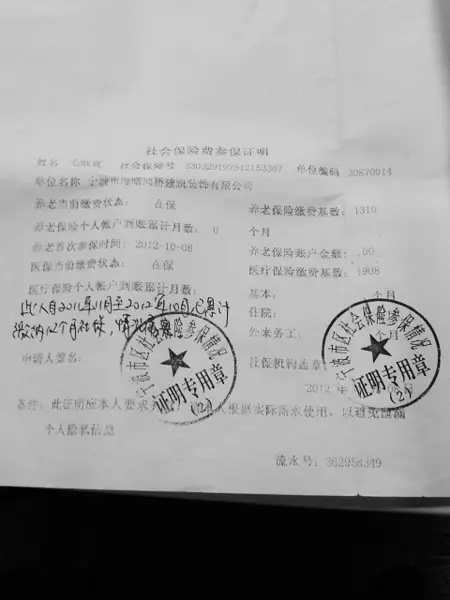 社会保险费参保证明
姓名 社会保障号 330329197512153367 单位编码 30870014
单位名称 宁波市海曙 桥建筑装饰有限公司
养老当前缴费状态: 在保 养老保险缴费基数: 1310
养老保险个人帐户到账累计月数: 0 个月
养老首次参保时间: 2012-10-08 养老保险账户金额: .00
医保当前缴费状态: 在保 医疗保险缴费基数: 1908
医疗保险个人帐户到账累计月数: 基本: 个月
此人自2011年11月至2012年10月已累计 住院: 个月
缴纳12个月社保,情况 外来务工: 个月
申请人签名: 社保机构盖章:
2012 年
宁波市区社会保险参保情况
证明专用章
(2)
宁波市区社会保险参保情况
证明专用章
(2)
备注: 此证明应本人要求 人根据实际需求使用,以避免泄漏
个人隐私信息
流水号: 362958349